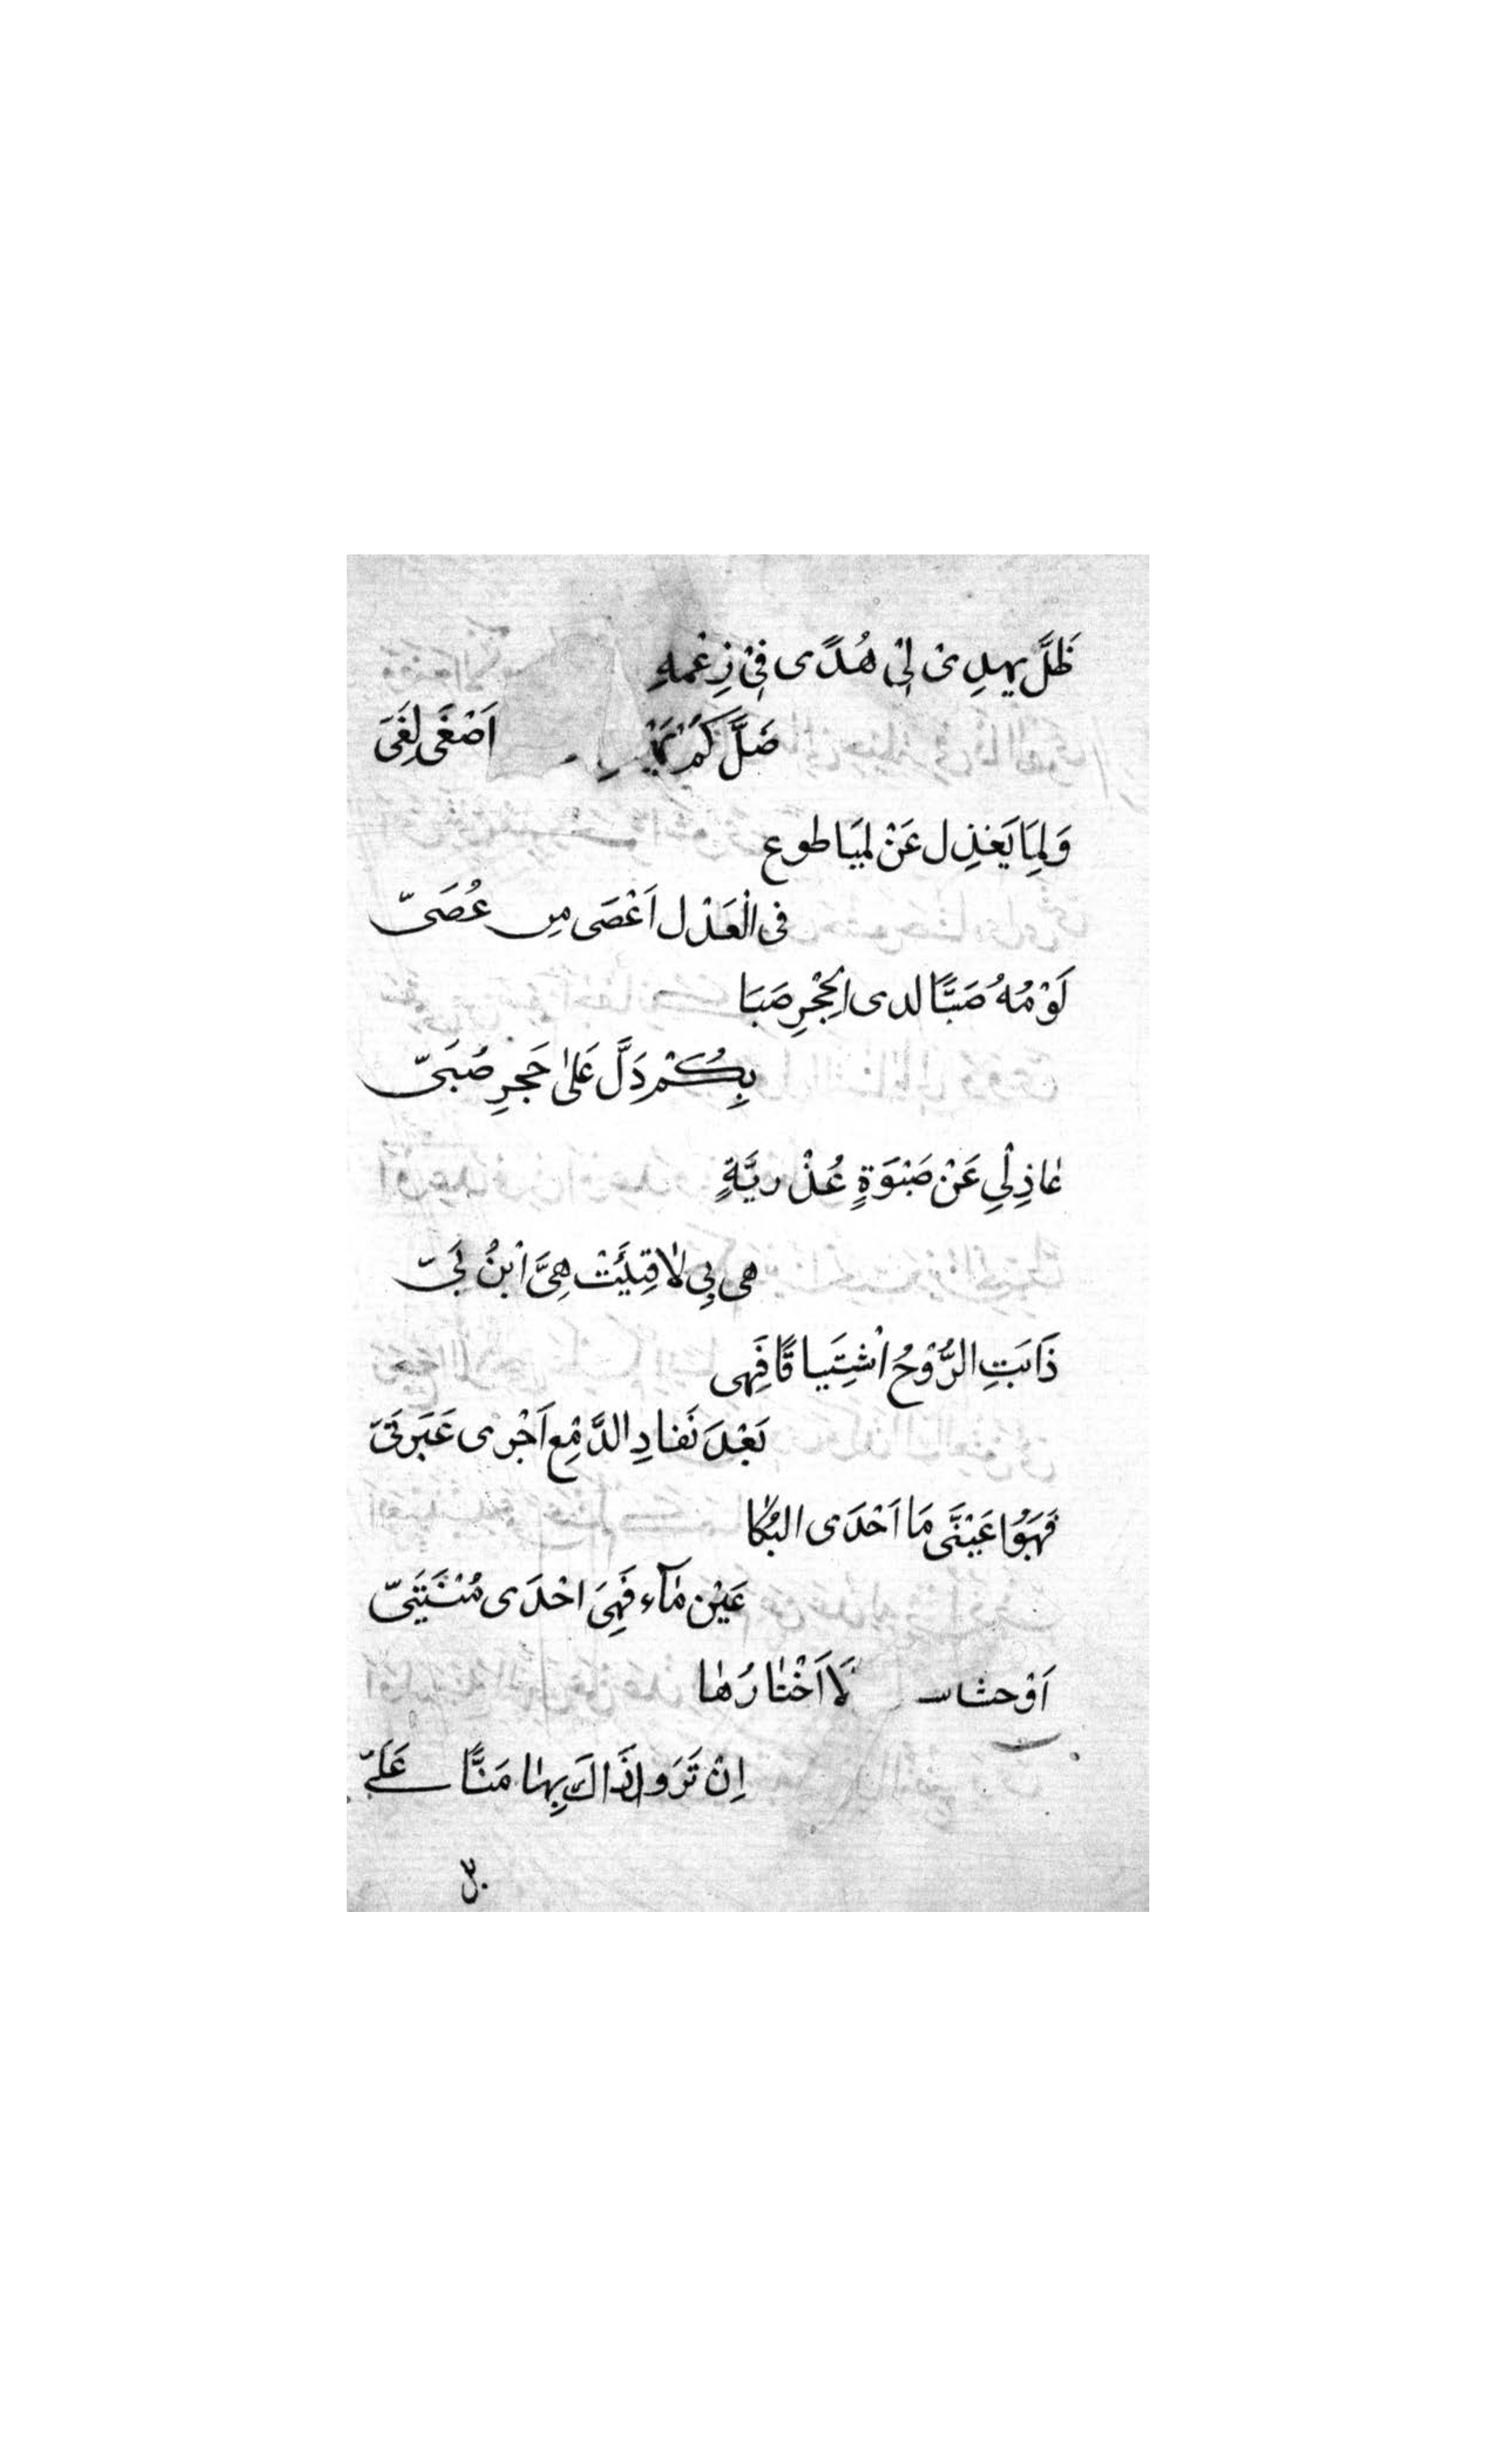 ظَلَّ يهدِىْ لِىْ هُدًى فِىْ زِعْمِهِ
ضَلَّ كَمْ اَصْغَى لِغَىَ
وَلِمَا يَعْذِل عَنْ لميَا طوع
فى الْعَذْل اَعْصَى من عُصَىّ
لَوْمُهُ صَبًّا لدى الحِجْرِ صَبَا
بِكُمْ دَلَّ عَلىٰ حَجرِ صُبَىّ
عٰاذِلِى عَنْ صَبْوَةٍ عُذْريَّةٍ
هى بِى لاٰ فتِيَتْ هِىَّ اْبنُ بَىّ
ذَابَتِ الرُّوْحُ اشْتِيَاقًا فَهِى
بَعْدَ نَفَادِ الدَّمْعِ اَجْرٰى عَبَرتَىّ
فَهَبُوْا عَيْنَىَّ مَا اَحْدَى البُكٰا
عَيْن مٰآء فَهِىَ احْدَى مُنْيَتَىّ
اَوْ حشا لَا اَخْتٰارُهٰا
اِنْ تَرَوا ذَاكَ بِهٰا مَنًّا عَلَىّ